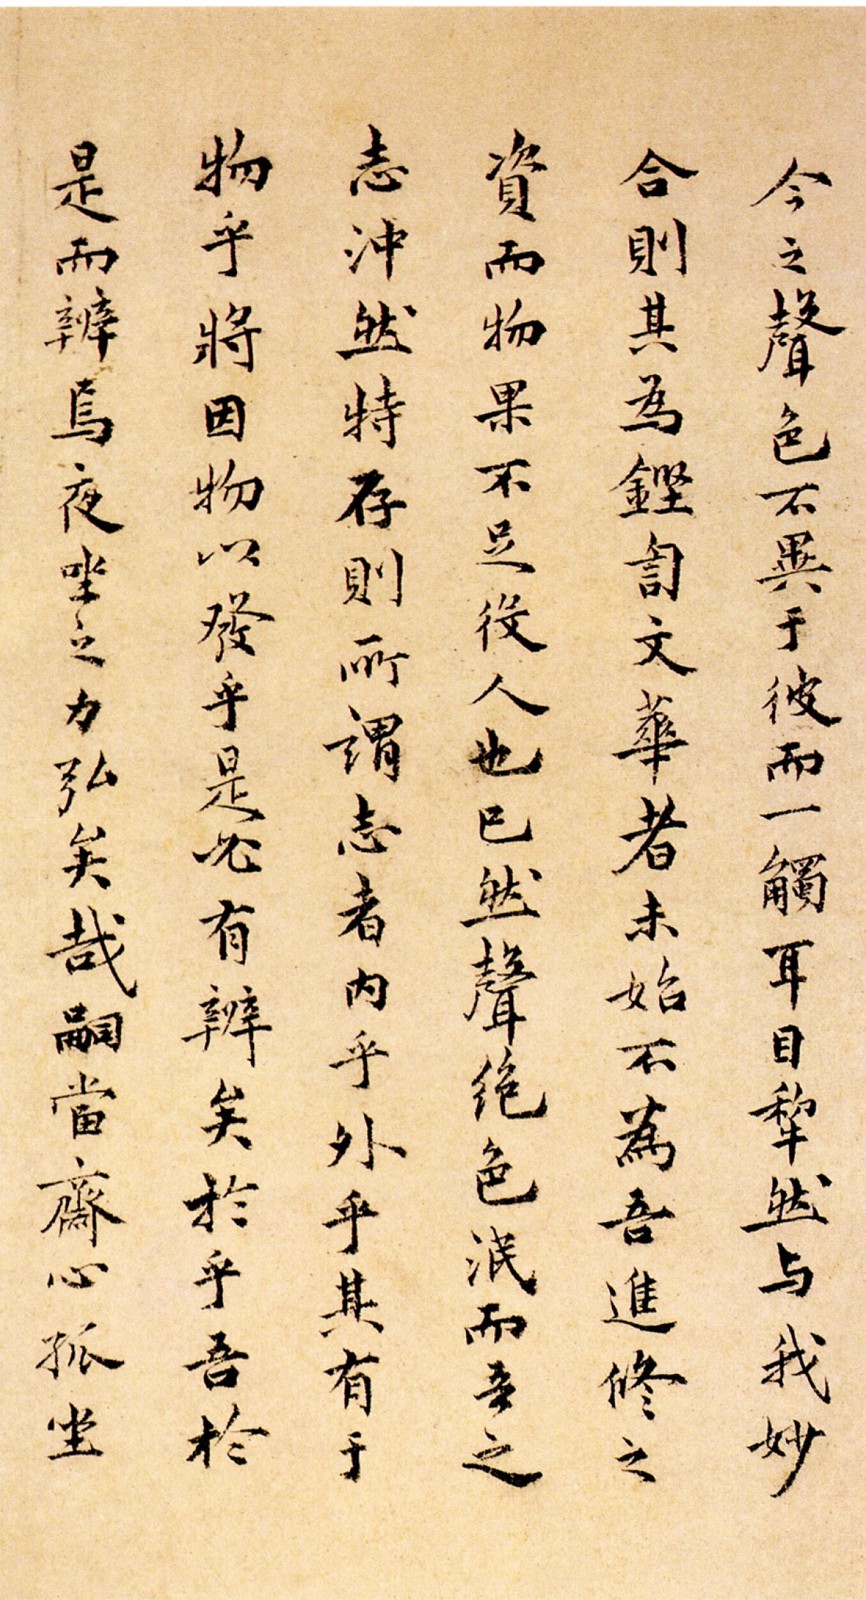 今之聲色不異于彼而一觸耳目犂然与我妙
合則其為鏗訇文華者未始不為吾進修之
資而物果不足役人也已然聲绝色泯而吾之
志沖然特存則所謂志者内乎外乎其有于
物乎將因物以發乎是必有辨矣於乎吾於
是而辨焉夜坐之力弘矣哉嗣當齋心孤坐